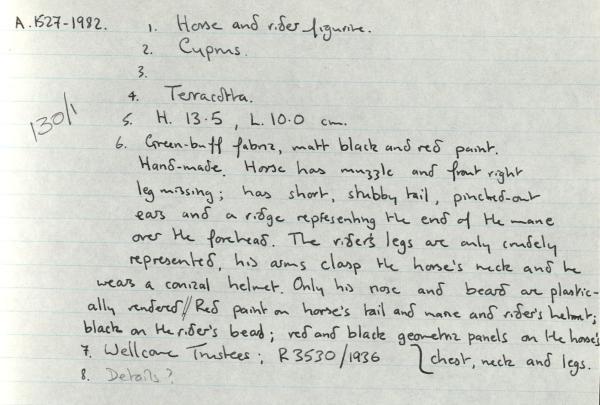 A.1527-1982. 1. Horse and rider figurine.
2. Cyprus.
3.
4. Terracotta.
130/1
5. H. 13.5, L. 10.0 cm.
6. Green-buff fabric, matt black and red paint.
Hand-made. Horse has muzzle and front right
leg missing; has short, stubby tail, pinched-out
ears and a ridge representing the end of the mane
over the forehead. The rider's legs are only crudely
represented, his arms clasp the horse's neck and he
wears a conical helmet. Only his nose and beard are plastic-
ally rendered // Red paint on horse's tail and mane and rider's helmet;
black on the rider's beard; red and black geometric panels on the horse's
7. Wellcome Trustees; R3530/1936 } chest, neck and legs.
8. Details?